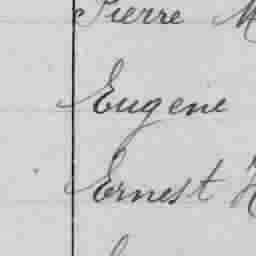 Pierre M
Eugene
Ernest H